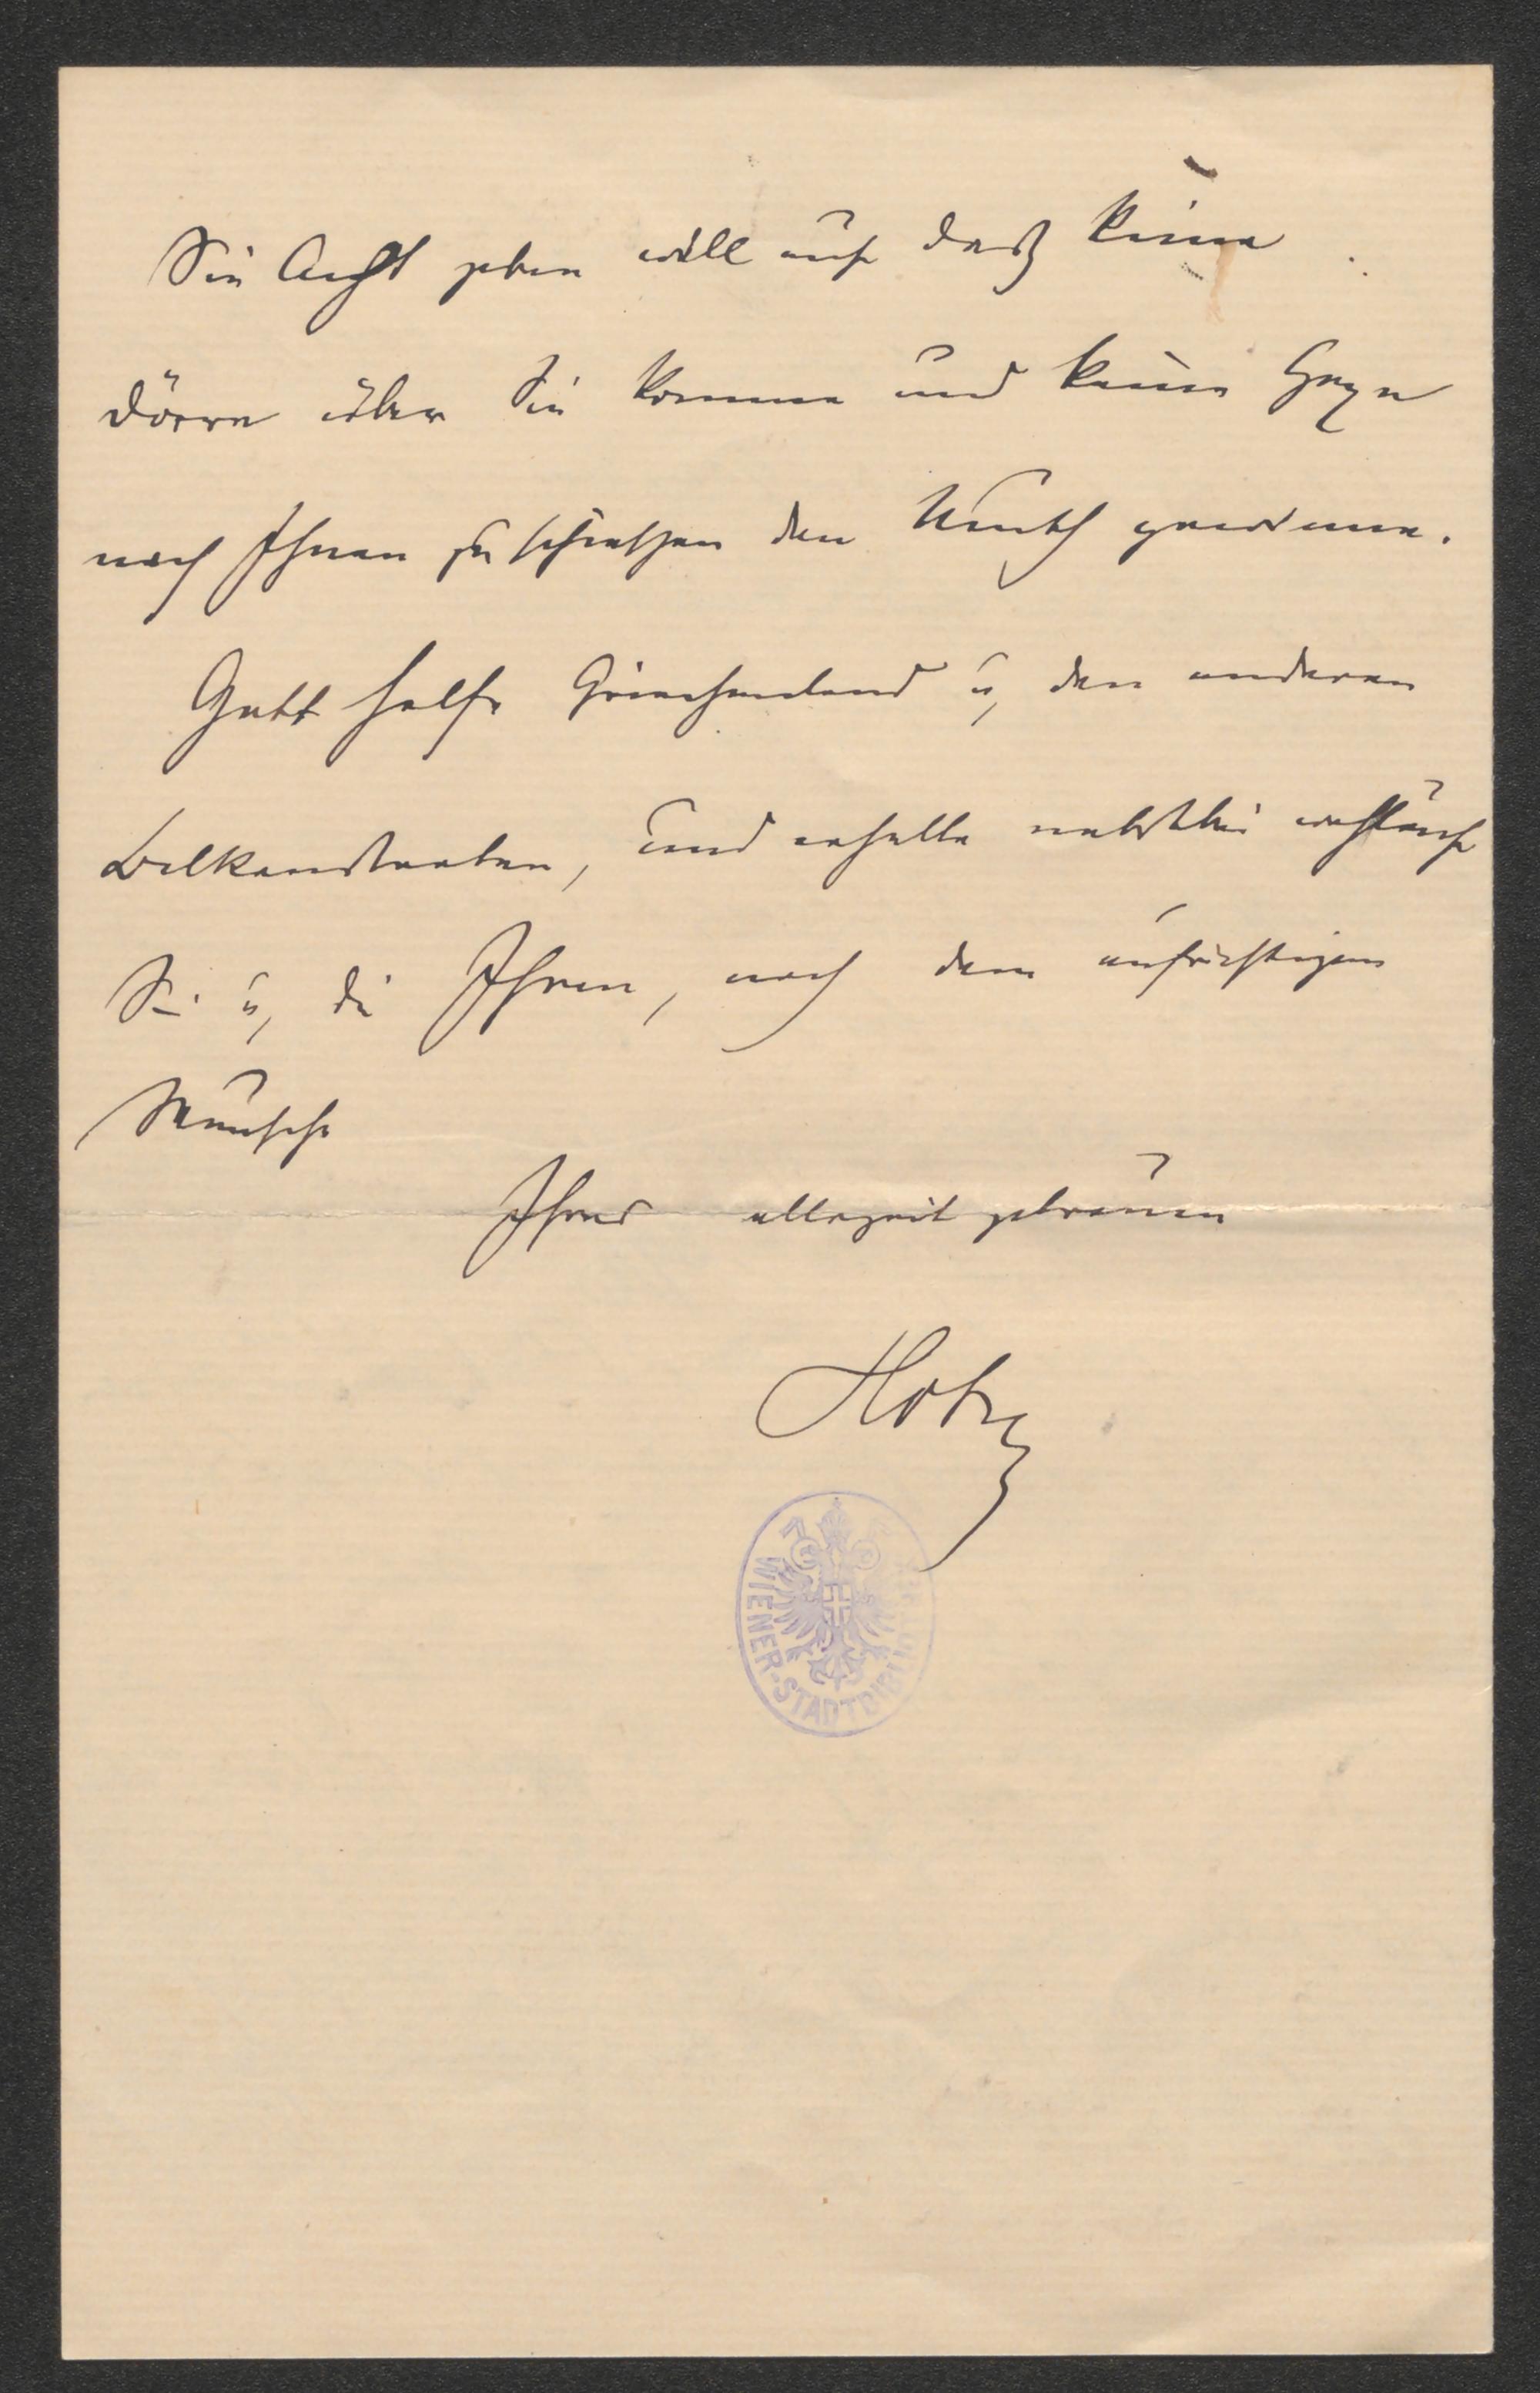 Sie Acht geben will auf daß keine
Dörre über Sie komme und keine Hexe
nach Ihnen zu schießen den Muth gewinne.
Gott helfe Griechenland u, den anderen
Balkanstaaten, und erhalte nebstbei
Sie u, die Ihren, nach dem aufrichtigen
Wunsche
Ihres allezeit getreuen
Hotzy
WIENER-STADTBIBLIOTHEK